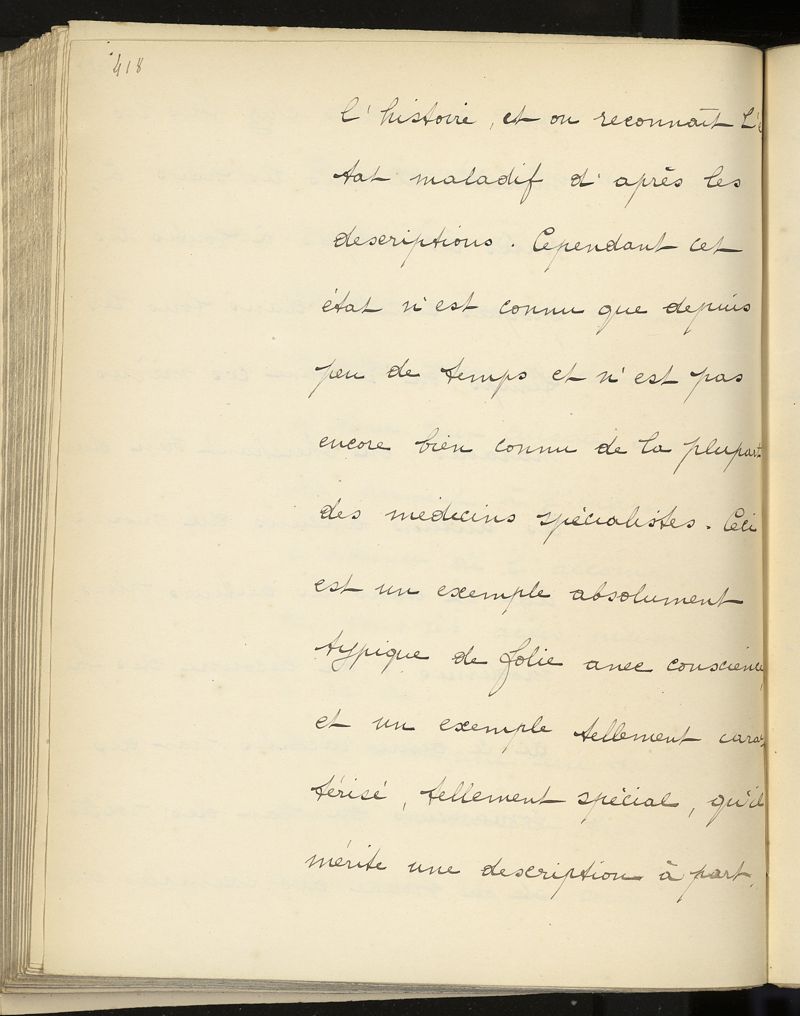 418
l'histoire, et on reconnaît L'é
tat maladif d'après les
descriptions. Cependant cet
état n'est connu que depuis
peu de temps et n'est pas
encore bien connu de la plupart
des médecins spécialistes. Ceci
est un exemple absolument
typique de folie avec conscience
et un exemple tellement carac
térisé, tellement spécial, qu'il
mérite une description à part.